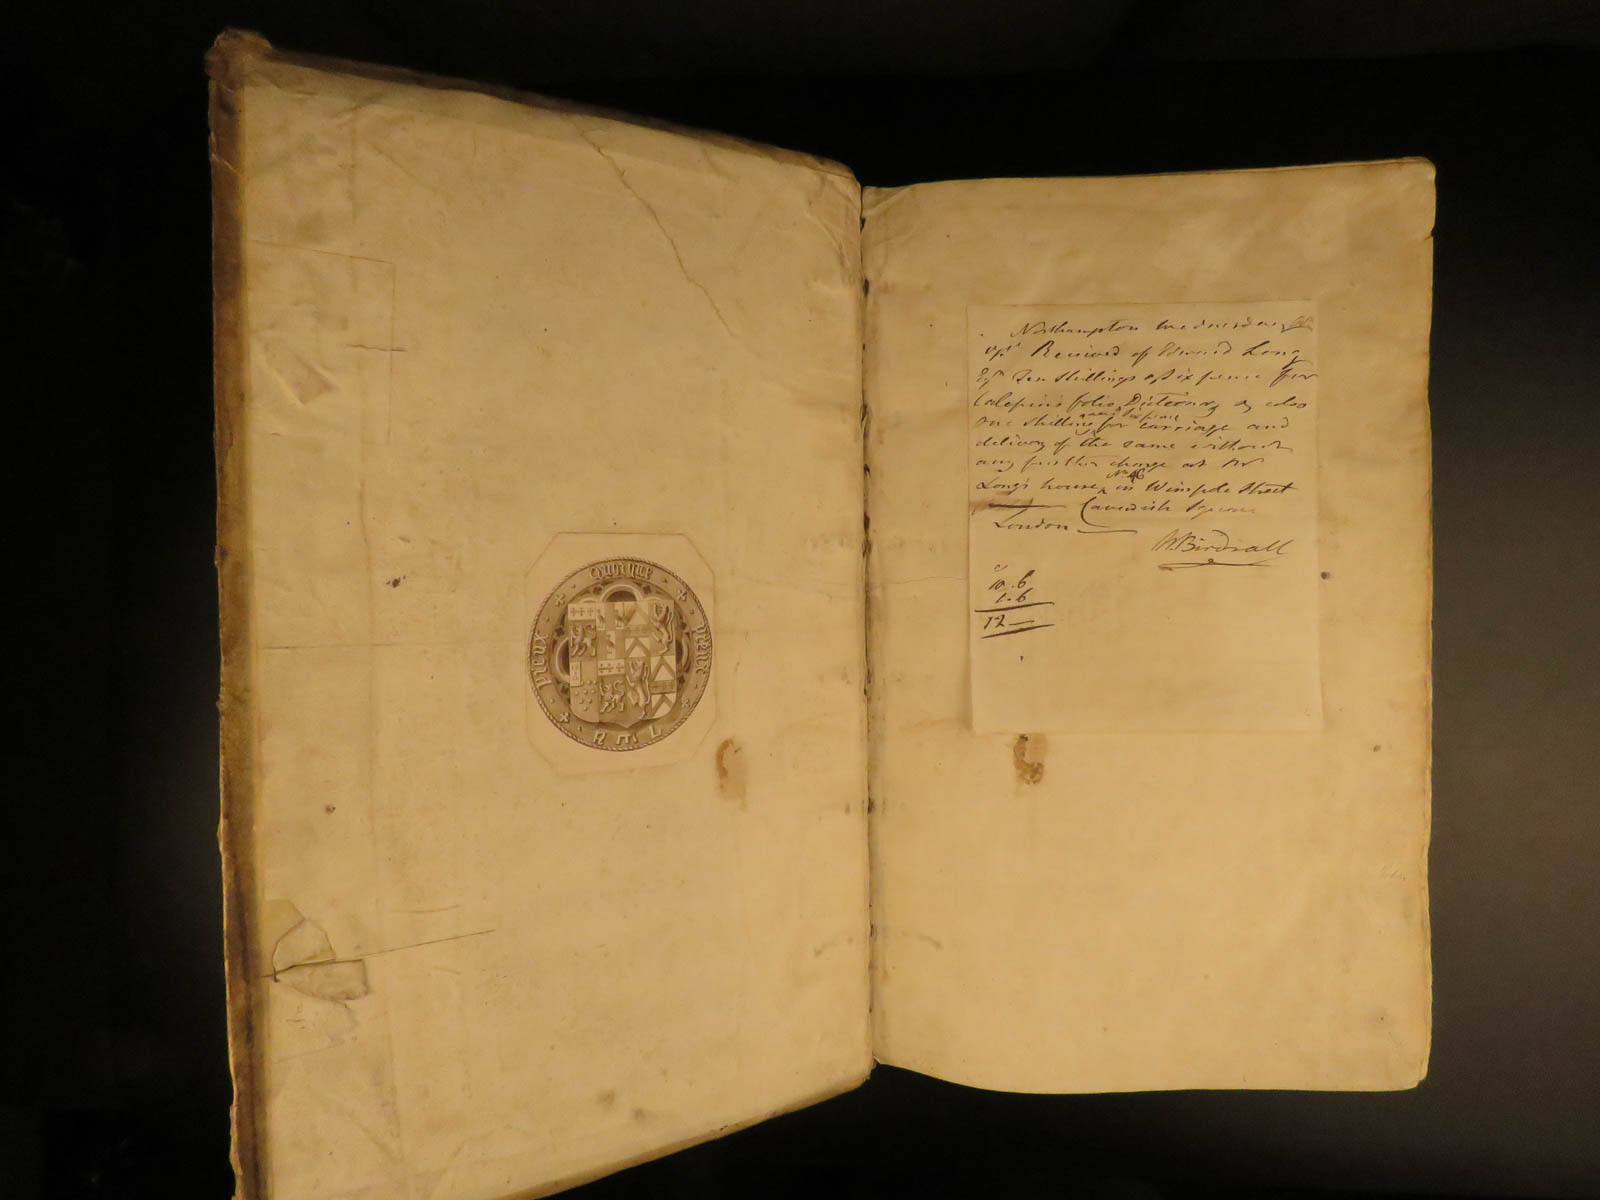 PIEUX QUOIQUE PREUX
R M L
Northampton Wednesday
Sept. Received of Edward Long
Esqr. Ten Shillings & Six pence for
Calepin's folio Dictionary & also
one shilling and six pence for carriage and
delivery of the same without
any further charge at Mr
Long's house No. 46 in Wimpole Street
Cavendish Square
London
W. Birdsall
10.6
1.6
12 —